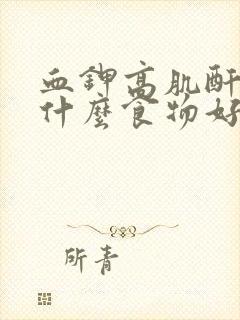 血鉀高肌酐
什麼食物好
所青